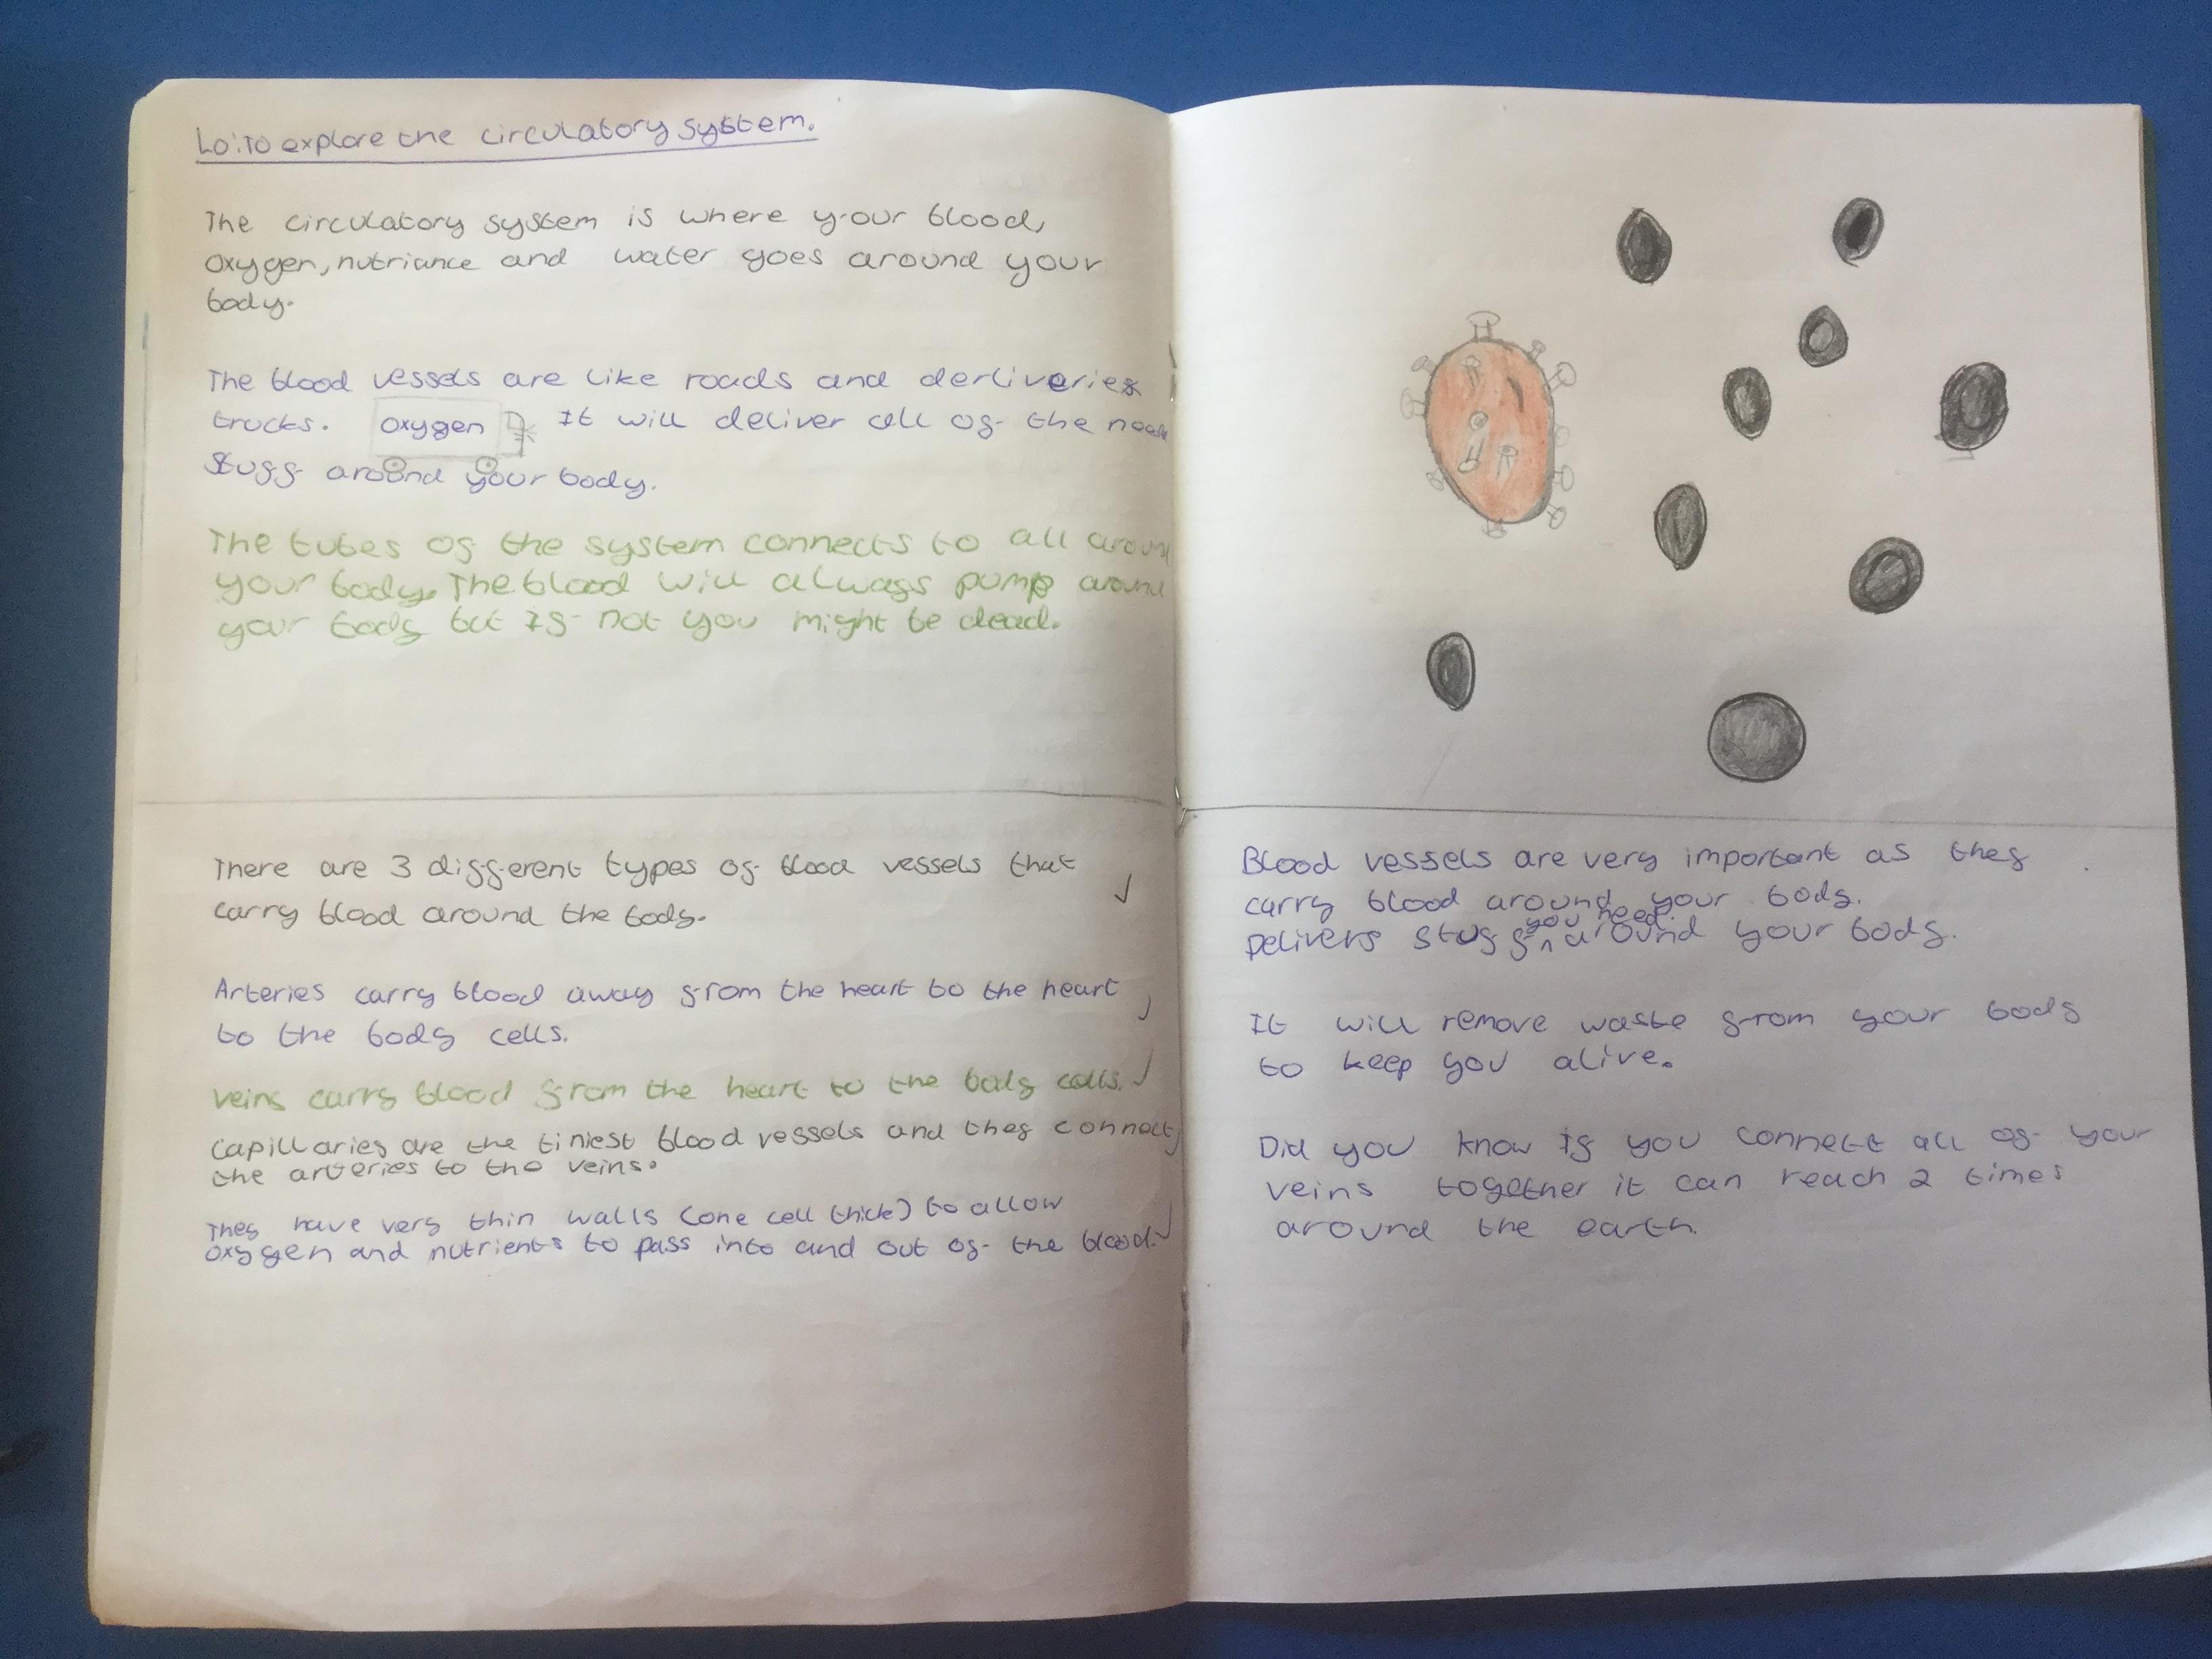 Lo: To explore the circulatory system.
The circulatory system is where your blood,
oxygen, nutriance and water goes around your
body.
The blood vessels are like roads and derliveries
trucks. oxygen It will deliver all of the need
stuff around your body.
The tubes of the system connects to all around
your body. The blood will always pump around
your body but if not you might be dead.
There are 3 different types of blood vessels that
carry blood around the body.
Arteries carry blood away from the heart to the heart
to the body cells.
Veins carry blood from the heart to the body cells.
Capillaries are the tiniest blood vessels and they connect
the arteries to the veins.
They have very thin walls (one cell thick) to allow
oxygen and nutrients to pass into and out of the blood.
Blood vessels are very important as they
carry blood around your body.
Delivers stuff you need around your body.
It will remove waste from your body
to keep you alive.
Did you know if you connect all of your
veins together it can reach 2 times
around the earth.